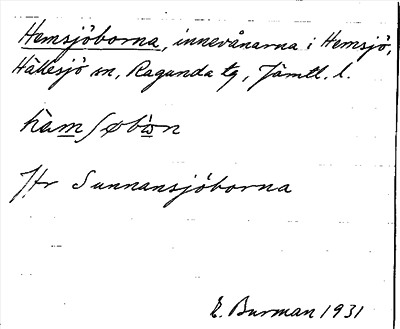 Hemsjöborna, innevånarna i Hemsjö,
Hällesjö sn, Ragunda tg, Jämtl. l.
hàmʃøbòn
Jfr Sunnansjöborna
E. Burman 1931